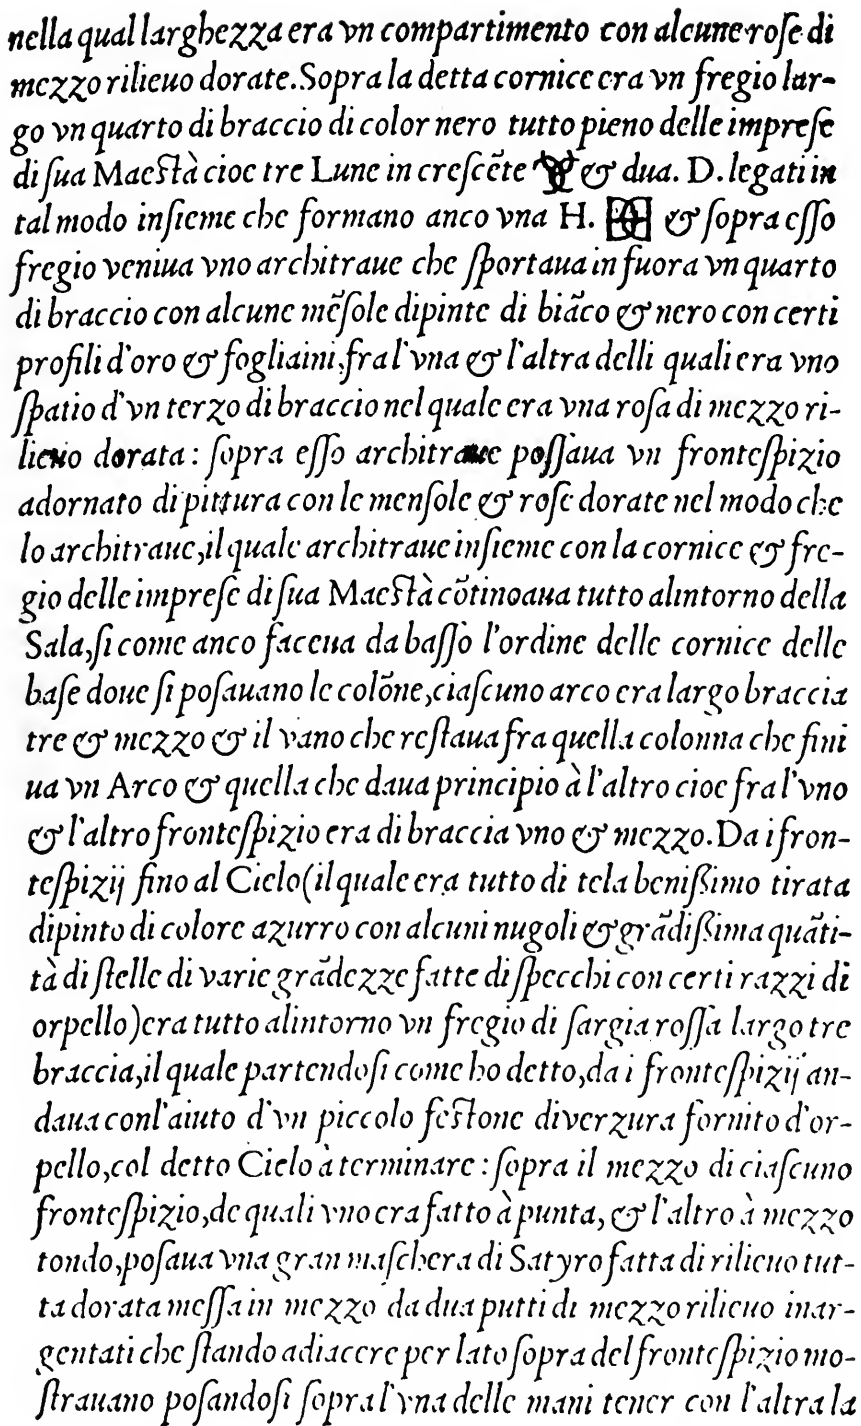 nella qual larghezza era vn compartimento con alcune roſe di
mezzo rilieuo dorate. Sopra la detta cornice era vn fregio lar-
go vn quarto di braccio di color nero tutto pieno delle impreſe
di ſua Maeſtà cioe tre Lune in creſcẽte & dua. D. legati in
tal modo inſieme che formano anco vna H. & ſopra eſſo
fregio veniua vno architraue che ſportaua in fuora vn quarto
di braccio con alcune mẽſole dipinte di biãco & nero con certi
profili d'oro & fogliaini, fra l'vna & l'altra delli quali era vno
ſpatio d'vn terzo di braccio nel quale era vna roſa di mezzo ri-
lieuo dorata: ſopra eſſo architraue poſſaua vn fronteſpizio
adornato di pittura con le menſole & roſe dorate nel modo che
lo architraue, il quale architraue inſieme con la cornice & fre-
gio delle impreſe di ſua Maeſtà cõtinoaua tutto alintorno della
Sala, ſi come anco faceua da baſſo l'ordine delle cornice delle
baſe doue ſi poſauano le colõne, ciaſcuno arco era largo braccia
tre & mezzo & il vano che reſtaua fra quella colonna che fini
ua vn Arco & quella che daua principio à l'altro cioe fra l'vno
& l'altro fronteſpizio era di braccia vno & mezzo. Da i fron-
teſpizij fino al Cielo (il quale era tutto di tela beniſſimo tirata
dipinto di colore azurro con alcuni nugoli & grãdiſſima quãti-
tà di ſtelle di varie grãdezze fatte di ſpecchi con certi razzi di
orpello) era tutto alintorno vn fregio di ſargia roſſa largo tre
braccia, il quale partendoſi come ho detto, da i fronteſpizij an-
daua con l'aiuto d'vn piccolo feſtone diverzura fornito d'or-
pello, col detto Cielo à terminare: ſopra il mezzo di ciaſcuno
fronteſpizio, de quali vno era fatto à punta, & l'altro à mezzo
tondo, poſaua vna gran maſchera di Satyro fatta di rilieuo tut-
ta dorata meſſa in mezzo da dua putti di mezzo rilieuo inar-
gentati che ſtando adiacere per lato ſopra del fronteſpizio mo-
ſtrauano poſandoſi ſopra l'vna delle mani tener con l'altra la